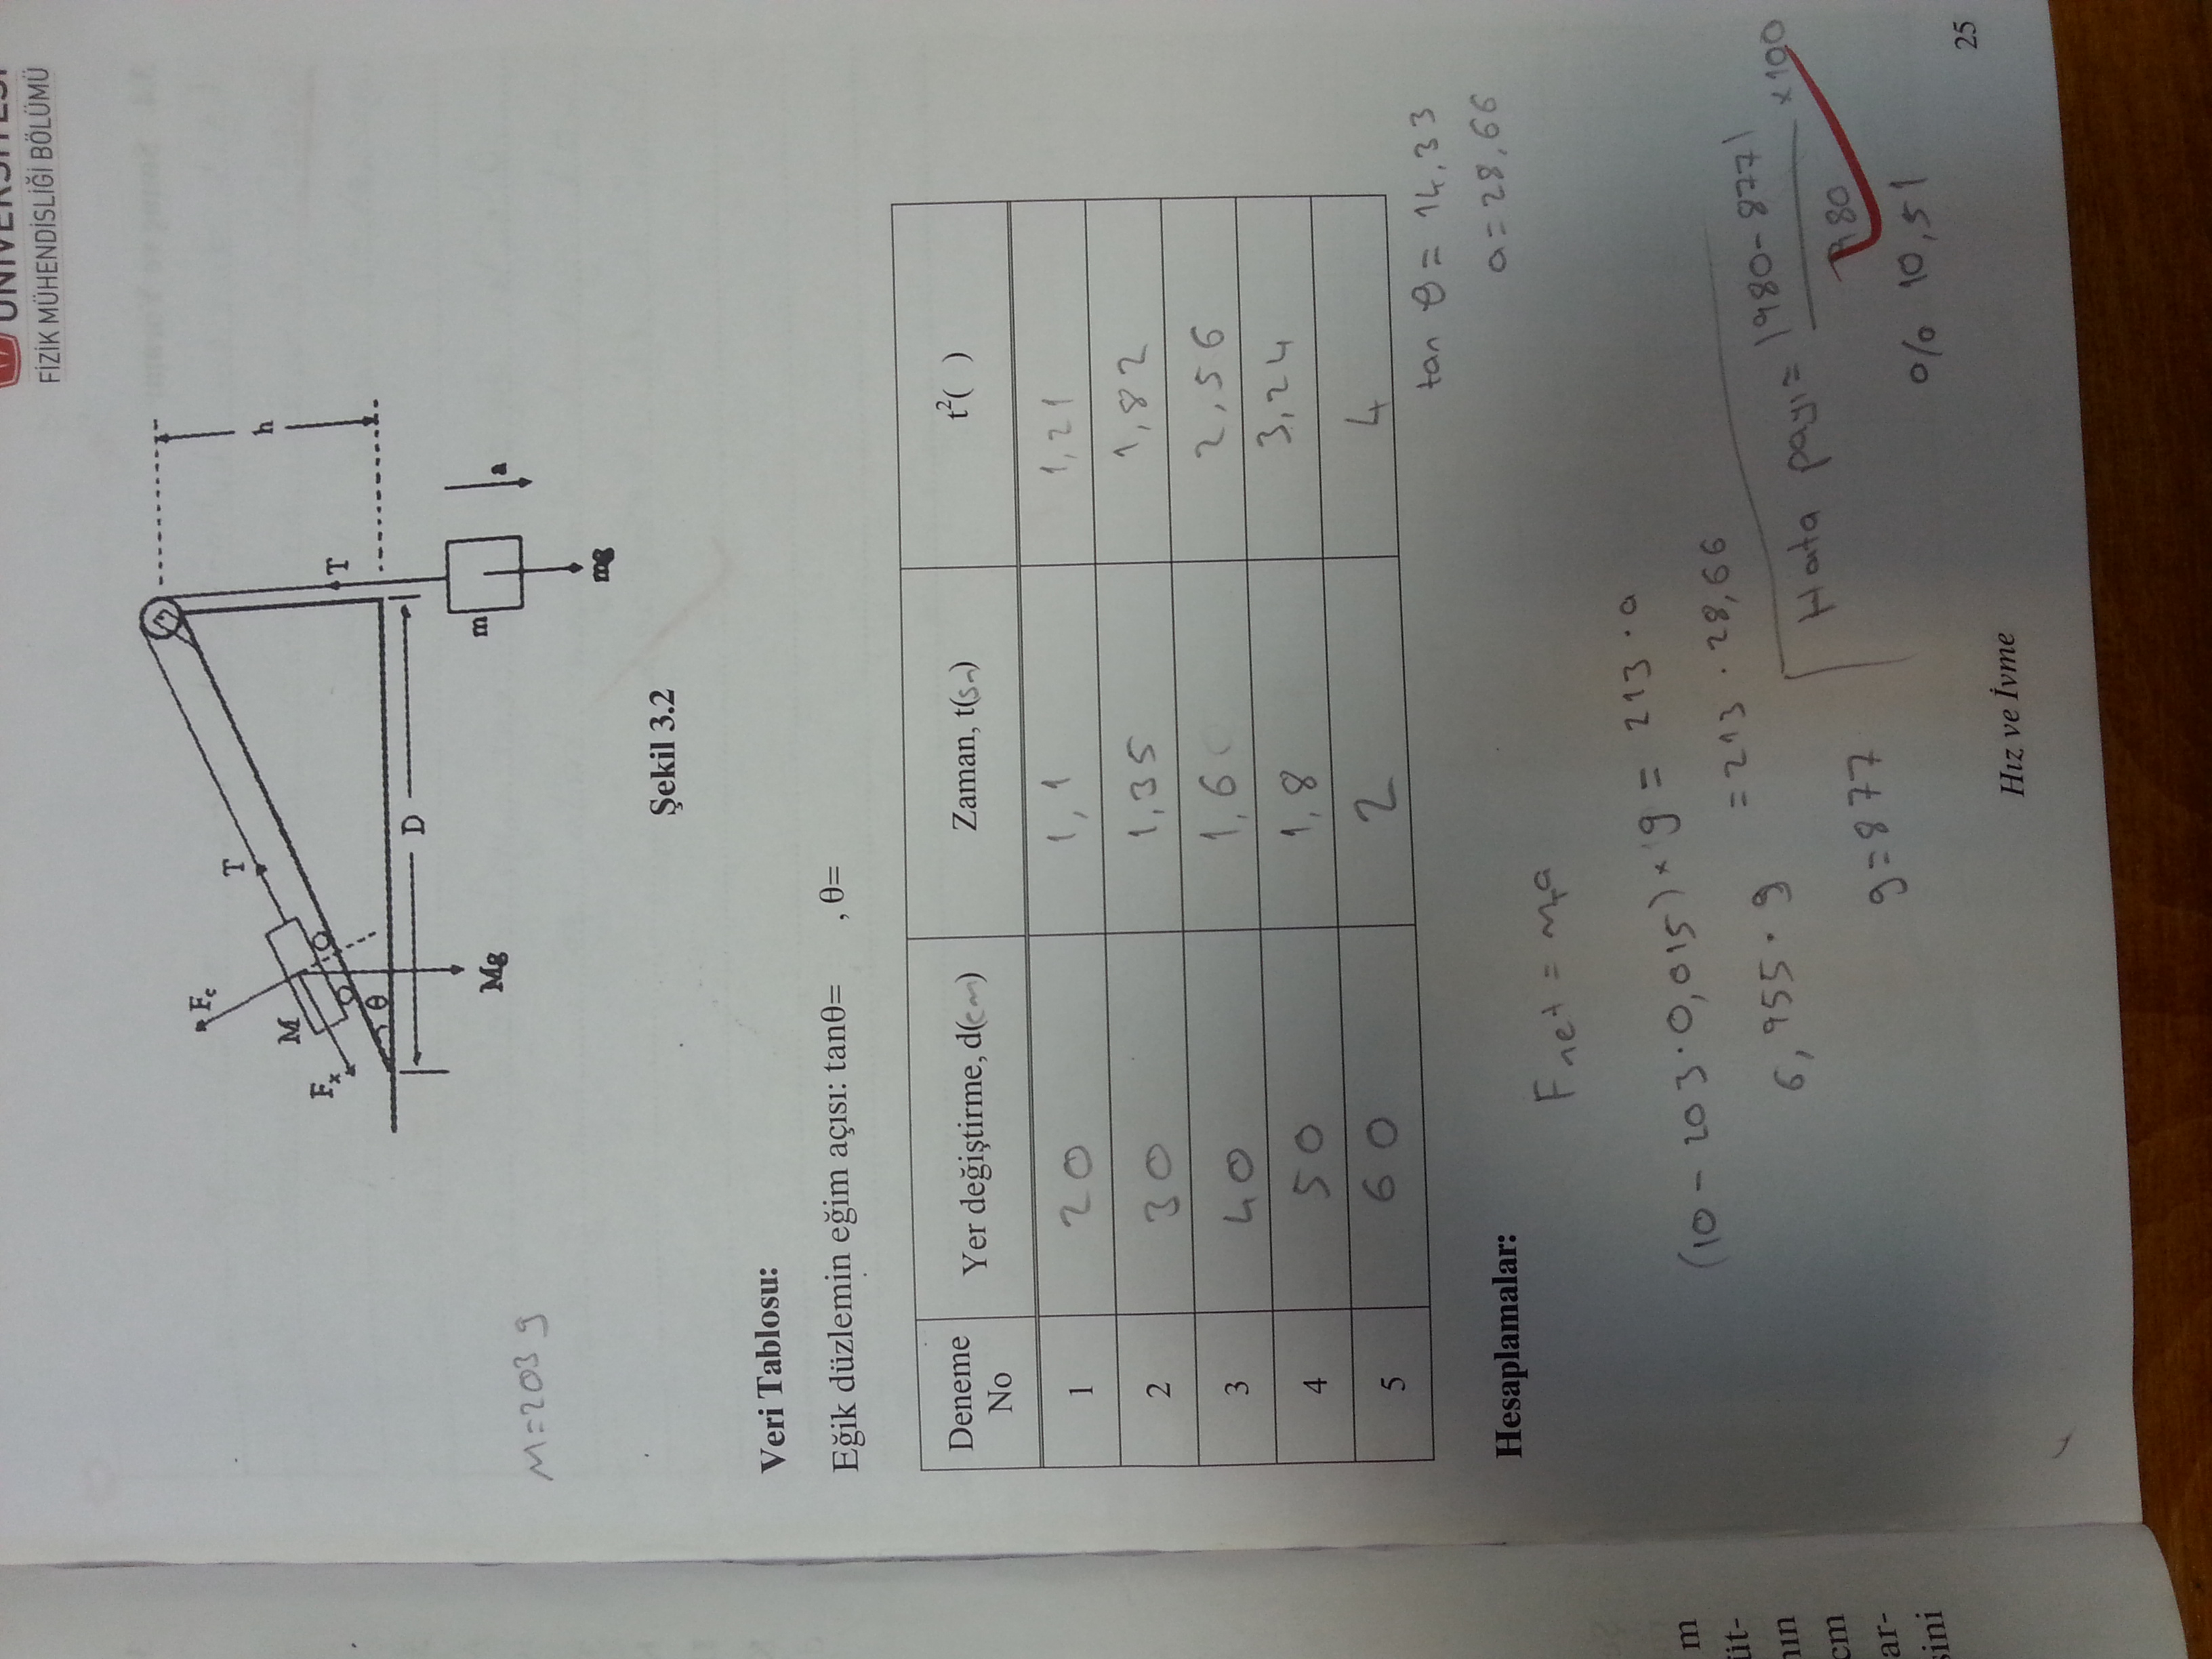 ÜNİVERSİTESİ
FİZİK MÜHENDİSLİĞİ BÖLÜMÜ
F_c
T
M
F_x
θ
h
T
D
m
a
Mg
mg
M=203 g
Şekil 3.2
Veri Tablosu:
Eğik düzlemin eğim açısı: tanθ= , θ=
Deneme No Yer değiştirme, d(cm) Zaman, t(sn) t²( )
1 20 1,1 1,21
2 30 1,35 1,82
3 40 1,6 2,56
4 50 1,8 3,24
5 60 2 4
tan θ = 14,33
a = 28,66
Hesaplamalar:
Fnet = m_T a
(10 - 203 · 0,015) × g = 213 · a
6,955 · g = 213 · 28,66
g = 877
Hata payı = |980 - 877| / 980 × 100
% 10,51
m
üt-
nın
cm
ar-
sini
Hız ve İvme
25